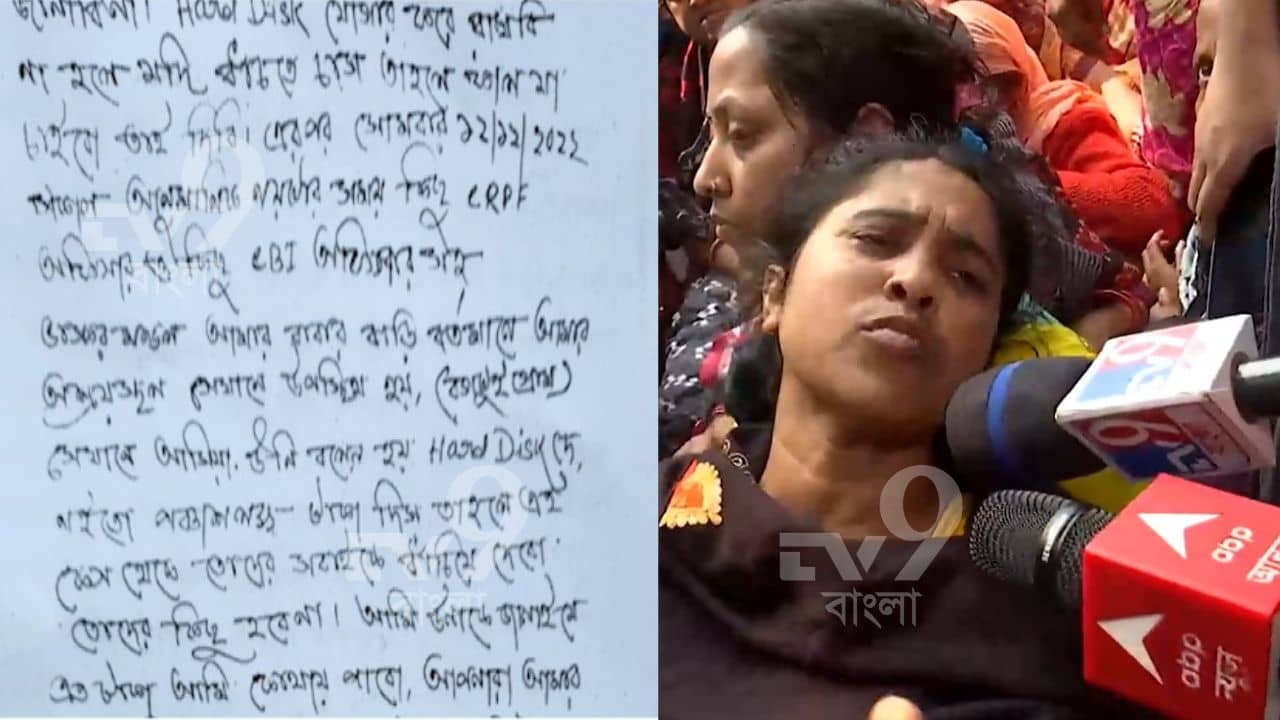 জানাবিনা। Hard Disk যোগার করে রাখবি
না হলে যদি বাঁচতে চাস তাহলে কাল যা
চাইবো তাই দিবি। এরপর সোমবার ১২/১২/২০২২
সকাল আনুমানিক নয়টার সময় কিছু CRPF
অফিসার ও কিছু CBI অফিসার
আমার বাবার বাড়ি বর্তমানে আমার
সেখানে উপস্থিত হয়,
সেখানে আসিয়া উনি বলেন হয় Hard Disk দে,
নইতো পঞ্চাশলক্ষ টাকা দিস তাহলে এই
কেস থেকে তোদের সবাইকে বাঁচিয়ে দেবো
তোদের কিছু হবেনা। আমি উনাকে জানাইলে
এত টাকা আমি কোথায় পাবো, আপনারা আমার
TV9
বাংলা
TV9
বাংলা
TV9
বাংলা
9
abp
abp
নিউজ